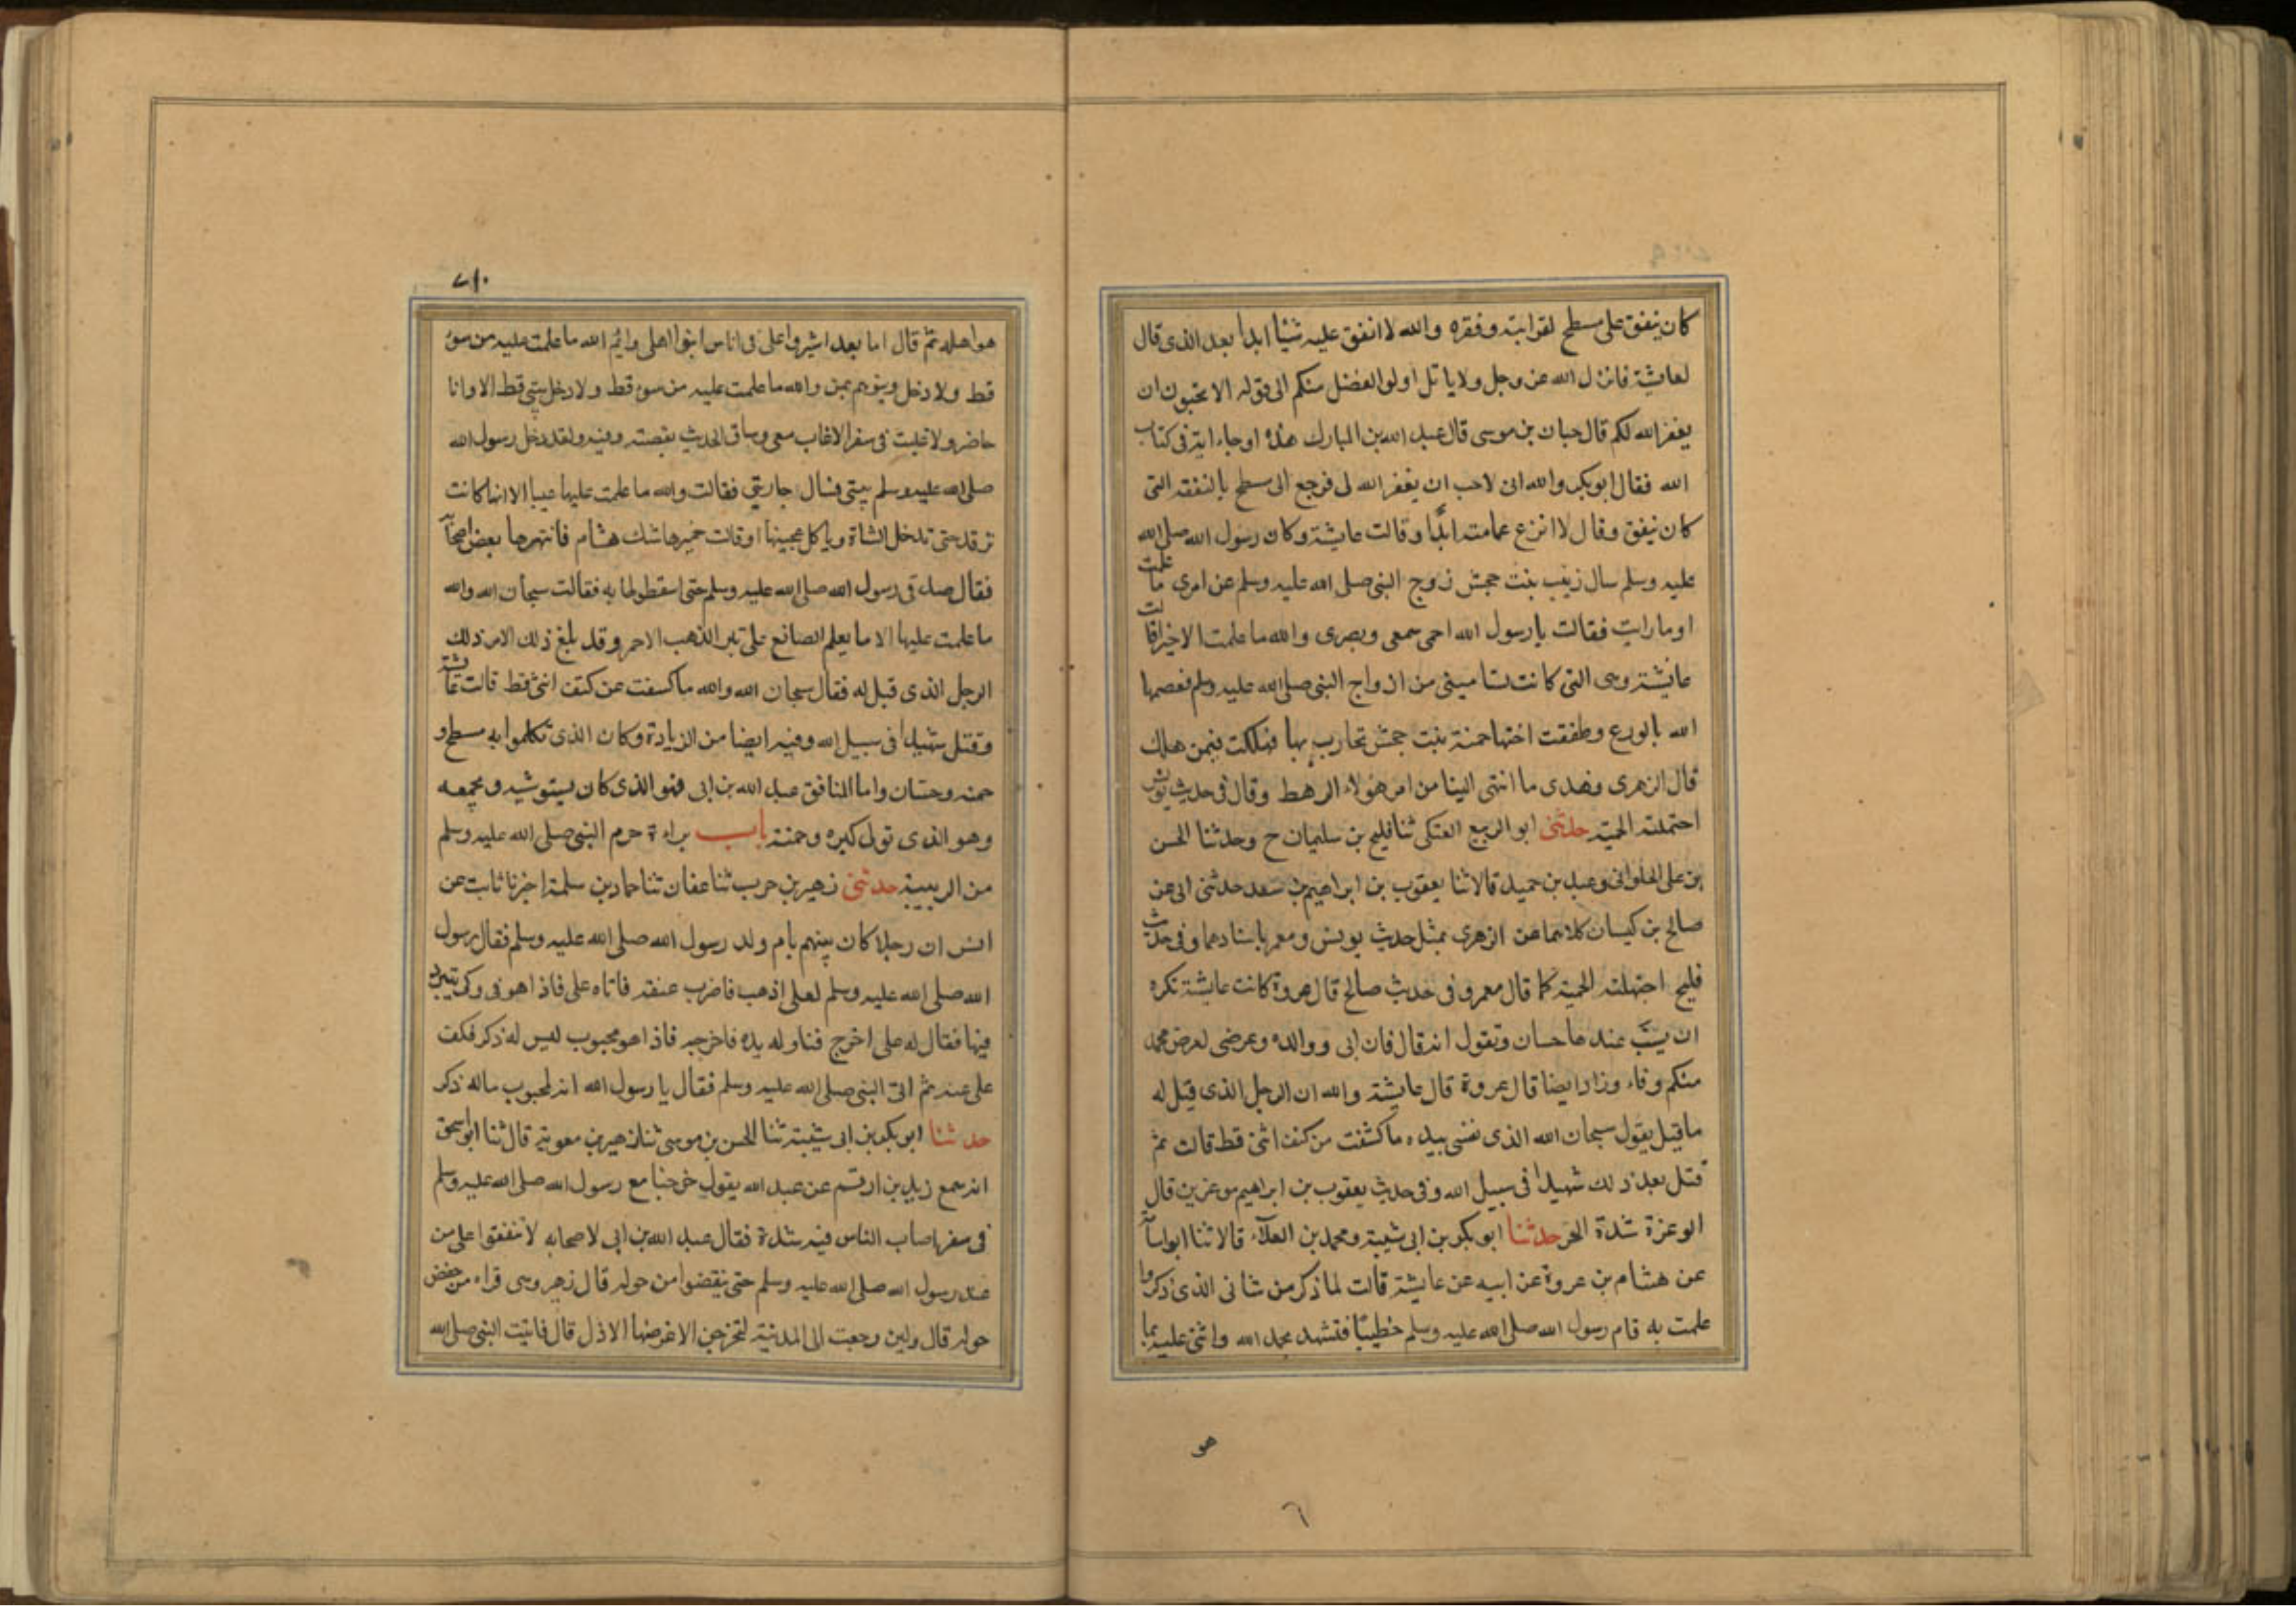 كان ينفق على مسطح لقرابته وفقره والله لا انفق عليه شيئا ابدا بعد الذى قال
لعايشة فانزل الله عز وجل ولا ياتل اولوا الفضل منكم الى قوله الا تحبون ان
يغفر الله لكم قال حبان بن موسى قال عبد الله بن المبارك هذه ارجا اية فى كتاب
الله فقال ابو بكر والله انى لاحب ان يغفر الله لى فرجع الى مسطح بالنفقه التى
كان ينفق وقال لا انزع عمامته ابدًا وقالت عايشة وكان رسول الله صلى الله
عليه وسلم سال زينب بنت جحش زوج النبى صلى الله عليه وسلم عن امرى ما علمت
او ما رايت فقالت يا رسول الله احمى سمعى وبصرى والله ما علمت الا خيرا قالت
عائيشة وهى التى كانت تسامينى من ازواج النبى صلى الله عليه وسلم فعصمها
الله بالورع وطفقت اختها حمنة بنت جحش تحارب بها فهلكت فيمن هلك
قال الزهرى فهذى ما انتهى الينا من امر هولاء الرهط وقال فى حديث يونس
احتملته الحمية حدثنى ابو الربيع العتكى ثنا فليح بن سليمان ح وحدثنا الحسن
بن على الحلوانى وعبد بن حميد قالا ثنا يعقوب بن ابراهيم بن سعد حدثنى ابى عن
صالح بن كيسان كلاهما عن الزهرى بمثل حديث يونس ومعمر باسنادهما وفى حديث
فليح اجتهلته الحمية كما قال معمر وفى حديث صالح قال عروة كانت عايشة تكره
ان يسبّ عندها حسان وتقول انه قال فان ابى ووالده وعرضى لعرض محمد
منكم وقاء وزاد ايضا قال عروة قال عايشة والله ان الرجل الذى قيل له
ما قيل يقول سبحان الله الذى نفسى بيده ما كشفت من كنف انثى قط قالت ثم
قتل بعد ذلك شهيدا فى سبيل الله وفى حديث يعقوب بن ابراهيم موعزين قال
الوعزة شدة الحر حدثنا ابو بكر بن ابى شيبة ومحمد بن العلآء قالا ثنا ابو اسامة
عن هشام بن عروة عن ابيه عن عايشة قالت لما ذكر من شانى الذى ذكروا
علمت به قام رسول الله صلى الله عليه وسلم خطيبًا فتشهد فحمد الله واثنى عليه بما
هو
٦
٧١٠
هو اهله ثم قال اما بعد اشيروا على فى اناس ابنوا اهلى وايم الله ما علمت عليه من سوء
قط ولا دخل بيتى قط الا وانا
حاضر ولا غبت فى سفر الا غاب معى وساق الحديث بقصته وفيه ولقد دخل رسول الله
صلى الله عليه وسلم بيتى فسال جاريتى فقالت والله ما علمت عليها عيبا الا انها كانت
ترقد حتى تدخل الشاة وياكل عجينها او قالت خميرها شك هشام فانتهرها بعض اصحابه
فقال اصدقى رسول الله صلى الله عليه وسلم حتى اسقطوا لها به فقالت سبحان الله والله
ما علمت عليها الا ما يعلم الصانع على تبر الذهب الاحمر وقد بلغ ذلك الامر ذلك
الرجل الذى قيل له فقال سبحان الله والله ما كسفت عن كنف انثى قط قالت عايشة
وقتل شهيدا فى سبيل الله وفيه ايضا من الزيادة وكان الذى تكلموا به مسطح و
حمنه وحسان واما المنافق عبد الله بن ابى فهو الذى كان يستوشيه ويجمعه
وهو الذى تولى كبره وحمنة باب براءة حرم النبى صلى الله عليه وسلم
من الريبية حدثنى زهير بن حرب ثنا عفان ثنا حماد بن سلمة اخبرنا ثابت عن
انس ان رجلا كان يتهم بام ولد رسول الله صلى الله عليه وسلم فقال رسول
الله صلى الله عليه وسلم لعلى اذهب فاضرب عنقه فاتاه على فاذا هو فى ركى يتبرد
فيها فقال له على اخرج فناوله يده فاخرجه فاذا هو مجبوب ليس له ذكر فكف
على عنه ثم اتى النبى صلى الله عليه وسلم فقال يا رسول الله انه لمجبوب ماله ذكر
حدثنا ابو بكر بن ابى شيبة ثنا الحسن بن موسى ثنا زهير بن معوية قال ثنا ابو اسحق
انه سمع زيد بن ارقم عن عبد الله يقول خرجنا مع رسول الله صلى الله عليه وسلم
فى سفر اصاب الناس فيه شدة فقال عبد الله بن ابى لاصحابه لا تنفقوا على من
عند رسول الله صلى الله عليه وسلم حتى ينفضوا من حوله قال زهير وهى قراءة من خفض
حوله قال ولين رجعت الى المدينة لتخرجن الاعز منها الاذل قال فاتيت النبى صلى الله